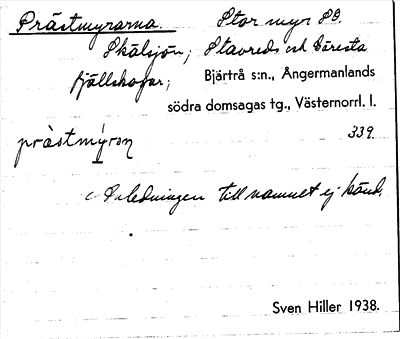 Prästmyrarna. Stor myr SO.
Skälsjön; Stavreds och Säresta
fjällskogar; Bjärtrå s:n., Ångermanlands
södra domsagas tg., Västernorrl. l.
339.
pràstmýrɔn
Anledningen till namnet ej känd.
Sven Hiller 1938.